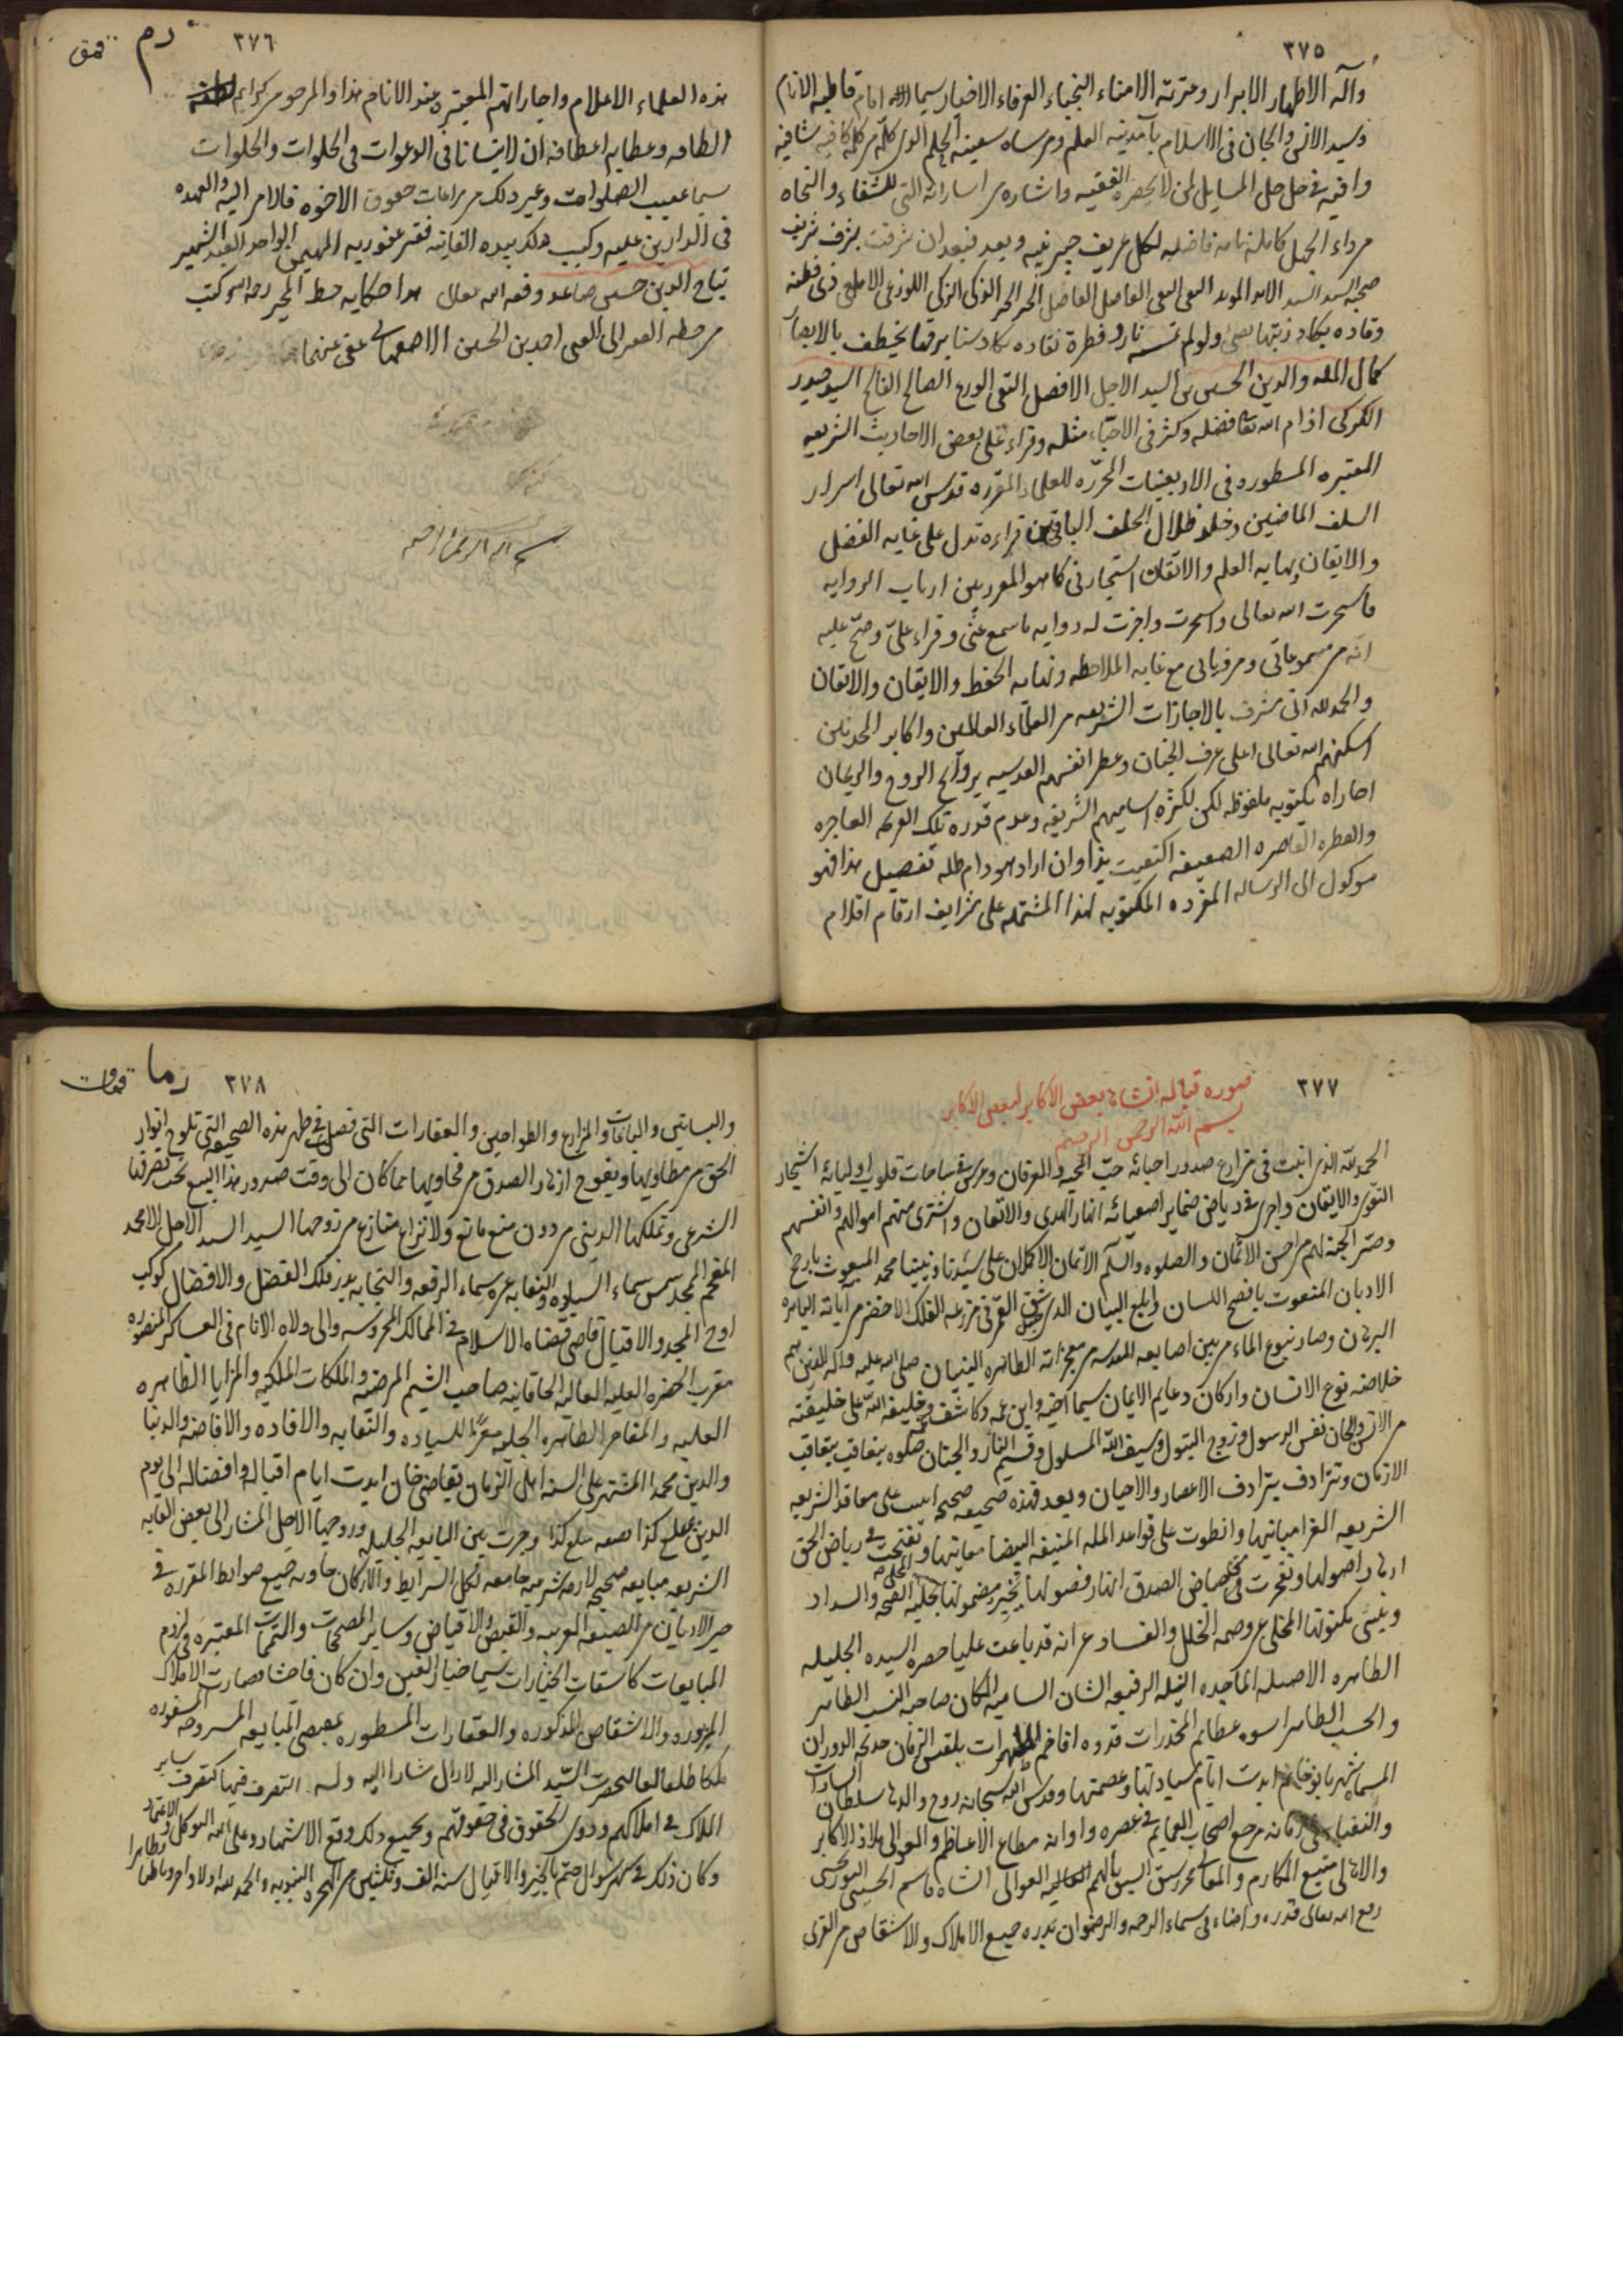 ٣٧٥
وآله الاطهار الابرار وعترته الامناء النجباء العرفاء الاخيار سيما امام قاطبه الانام
وسيد الانس والجان فى الاسلام باب مدينه العلم ومرساه سفينه الحلم الذى كل من كله كافيه شافيه
وافيه فى حل حل المسايل لمن لا يحضره الفقيه واشاره من اشاراته التى للشفاء والنجاه
من داء الجهل كامله تامه فاضله لكل عريف خبير نبيه وبعد فبعد ان شرفت بشرف شريف
صحبه السيد السيد الايد المويد التقى النقى الفاضل الحر الذكى الزكى اللوذعى الالمعى ذى فطنه
وقاده يكاد زيتها يضئ ولو لم تمسسه نار وفطرة نقاده يكاد سنا برقها يخطف بالابصار
كمال المله والدين الحسين بن السيد الاجل الافضل التقى الورع الصالح الفالح السيد حيدر
الكركى ادام الله تعالى فضله وكثر فى الاحبّاء مثله وقراء على بعض الاحاديث الشريعه
المعتبره المسطوره فى الاربعينات المحرّره للعلماء المقرره قدس الله تعالى اسرار
السلف الماضين وخلد ظلال الخلف الباقين قراءه تدل على غايه الفضل
والايقان ونهايه العلم والاتقان استجازنى كما هو المعهود بين ارباب الروايه
فاستخرت الله تعالى واستجزت واجزت له روايه ما سمع عنّى وقراء علىّ وصحّ عليه
انه من مسموعاتى ومروياتى مع غايه الملاحظه ونهايه الحفظ والايقان والاتقان
والحمد لله انى مشرف بالاجازات الشريعه من العلماء العاملين واكابر المحدثين
اسكنهم الله تعالى اعلى غرف الجنات وعطر انفسهم القدسيه بروائح الروح والريحان
اجازاه مكتوبه ملفوظه لكن لكثره اساميهم الشريفه وعدم قدره تلك القوه العاجزه
والفطره القاصره الضعيفه اكتفيت بهذا وان اراد هو دام ظله تفصيل هذا فهو
موكول الى الرساله المفرده المكتوبه لهذا المشتمله على شرايف ارقام اقلام
٣٧٦
هذه العلماء الاعلام واجازاتهم المعتبره عند الانام هذا والمرجو من كرايم لطفه
الطافه وعطايه اعطافه ان لا ينسانا فى الدعوات فى الخلوات والجلوات
سيما عقيب الصلوات وغير ذلك من مراعات حقوق الاخوه فالامر اليه والعهده
فى الدارين عليه وكتب ذلك بيده الفانيه فقير عفو ربه المهيمن الواحد
تاج الدين حسين صاعد وفقه الله تعالى هذا حكايه خط المجيز رحمه الله كتب
من خطه الفقير الى الغنى احمد بن الحسين الاصفهانى عفى عنهما
بسم الله الرحمن الرحيم
٣٧٧
صوره قباله انشاء بعض الاكابر لبعض الاكابر
بسم الله الرحمن الرحيم
الحمد لله الذى انبت فى مزارع صدور احبائه حبّ المحبه والعرفان وغرس فى ساحات قلوب اوليائه اشجار
التقوى والايقان واجرى فى رياض ضماير اصفيائه انهار الهدى والاتقان واشترى منهم اموالهم وانفسهم
وصيّر الجنه لهم من احسن الاثمان والصلوه والسلم الاتمان الاكملان على سيدنا ونبينا محمد المبعوث بارجح
الاديان المنعوت بافصح اللسان وابلج البيان الذى شق القمر فى مزرعه الفلك الاخضر من آياته الباهره
البرهان وصار نبوع الماء من بين اصابعه المقدسه من معجزاته الظاهره البنيان صلى الله عليه وآله الذين هم
خلاصه نوع الانسان واركان دعايم الايمان سيما اخيه وابن عمه وكاشف غمه وخليفه الله على خليقته
من الانس والجان نفس الرسول وزوج البتول وسيف الله المسلول وقسيم النار والجنان صلوه يتعاقب بتعاقب
الازمان وتترادف بترادف الاعصار والاحيان وبعد فهذه صحيفه صحيحه اسست على معاقد الشريعه
الشريفه الغرا مبانيها وانطوت على قواعد المله المنيفه البيضا معانيها وتفتحت فى رياض الحق
ازهار اصولها وتفجرت فى حياض الصدق انهار فصولها يخبر مضمونها المحلى بحليه الصحه والسداد
وينبئ مكنونها المخلى عن وصمه الخلل والفساد عن انه قد باعت عليا حضره السيده الجليله
الطاهره الاصيله الماجده النبيله الرفيعه الشان الساميه المكان صاحبه النسب الطاهر
والحسب الظاهر اسوه عظايم المخدرات قدوه افاخم المطهرات بلقيس الزمان خديجه الدوران
المسماه شهربانو خانم ابدت ايام سيادتها وعصمتها وقدس الله سبحانه روح والدها سلطان السادات
والنقبا فى زمانه مرجع اصحاب العمايم فى عصره واوانه مطاع الاعاظم والموالى ملاذ الاكابر
والاهالى منبع المكارم والمعالى السابق بالهمم العاليه العوالى الشاه قاسم الحسينى النوربخشى
رفع الله تعالى قدره واضاء فى سماء الرحمه والرضوان بدره جميع الاملاك والاشقاص من القرى
٣٧٨
والبساتين والباغات والمزارع والطواحين والعقارات التى فصل فى ظهر هذه الصحيفه التى تلوح انوار
الحق من مطاويها ويفوح ازهار الصدق من فحاويها مما كان الى وقت صدور هذا البيع تحت تصرفها
الشرعى وتملكها الدينى من دون منع مانع ولا نزاع منازع من زوجها السيد السند الاصل الامجد
المفخم الممجد شمس سماء السياده والنقابه غره سماء الرفعه والنجابه بدر فلك الفضل والافضال كوكب
اوج المجد والاقبال قاضى قضاه الاسلام فى الممالك المحروسه والى ولاه الانام فى العساكر المنصوره
مقرب الحضره العليه العاليه الخاقانيه صاحب الشيم المرضيه والملكات الملكيه والمزايا الظاهره
العليه والمفاخر الطاهره الجليه معزّا للسياده والنقابه والافاده والافاضه والدنيا
والدين محمد المشتهر على السنه اهل الزمان بقاضى خان ابدت ايام اقباله وافضاله الى يوم
الدين بمبلغ كذا نصفه مبلغ كذا وجرت بين البايعه الجليله وزوجها الاجل المشار الى بعض القابه
الشريفه مبايعه صحيحه لازمه شرعيه جامعه لكل الشرايط والاركان حاويه جميع ضوابط المقرره فى
خير الاديان من الصيغه العربيه والقبض والاقباض وساير المصححات والمتممات المعتبره فى لزوم
المبايعات كاسقاط الخيارات سيما خيار الغبن وان كان فاحشا فصارت الاملاك
المزبوره والاشقاص المذكوره والعقارات المسطوره بمقتضى المبايعه المشروحه المسفوره
ملكا طلقا لعاليحضرت السيّد المشار اليه لا زال مشارا اليه وله التصرف فيها كتصرف ساير
الملاك فى املاكهم وذوى الحقوق فى حقوقهم وبجميع ذلك وقع الاشهاد وعلى الله التوكل والاعتماد
وكان ذلك فى شهر شوال ختم بالخير والاقبال سنه الف وثلثين من الهجره النبويه والحمد لله اولا واخرا وباطنا وظاهرا